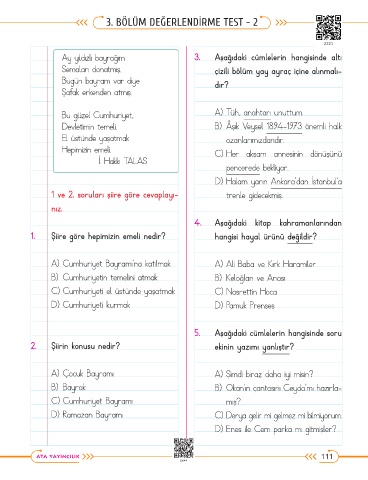 3. BÖLÜM DEĞERLENDİRME TEST - 2
Ay yıldızlı bayrağım
Semaları donatmış.
Bugün bayram var diye
Şafak erkenden atmış.
Bu güzel Cumhuriyet,
Devletimin temeli.
El üstünde yaşatmak
Hepimizin emeli.
İ. Hakkı TALAS
1 ve 2. soruları şiire göre cevaplayı-
nız.
1. Şiire göre hepimizin emeli nedir?
A) Cumhuriyet Bayramı'na katılmak
B) Cumhuriyetin temelini atmak
C) Cumhuriyeti el üstünde yaşatmak
D) Cumhuriyeti kurmak
2. Şiirin konusu nedir?
A) Çocuk Bayramı
B) Bayrak
C) Cumhuriyet Bayramı
D) Ramazan Bayramı
3. Aşağıdaki cümlelerin hangisinde altı
çizili bölüm yay ayraç içine alınmalı-
dır?
A) Tüh, anahtarı unuttum.
B) Âşık Veysel 1894-1973 önemli halk
ozanlarımızdandır.
C) Her akşam annesinin dönüşünü
pencerede bekliyor.
D) Halam yarın Ankara'dan İstanbul'a
trenle gidecekmiş.
4. Aşağıdaki kitap kahramanlarından
hangisi hayal ürünü değildir?
A) Ali Baba ve Kırk Haramiler
B) Keloğlan ve Anası
C) Nasrettin Hoca
D) Pamuk Prenses
5. Aşağıdaki cümlelerin hangisinde soru
ekinin yazımı yanlıştır?
A) Şimdi biraz daha iyi misin?
B) Okan'ın çantasını Ceyda mı hazırla-
mış?
C) Derya gelir mi gelmez mi bilmiyorum.
D) Enes ile Cem parka mı gitmişler?
ATA YAYINCILIK
111